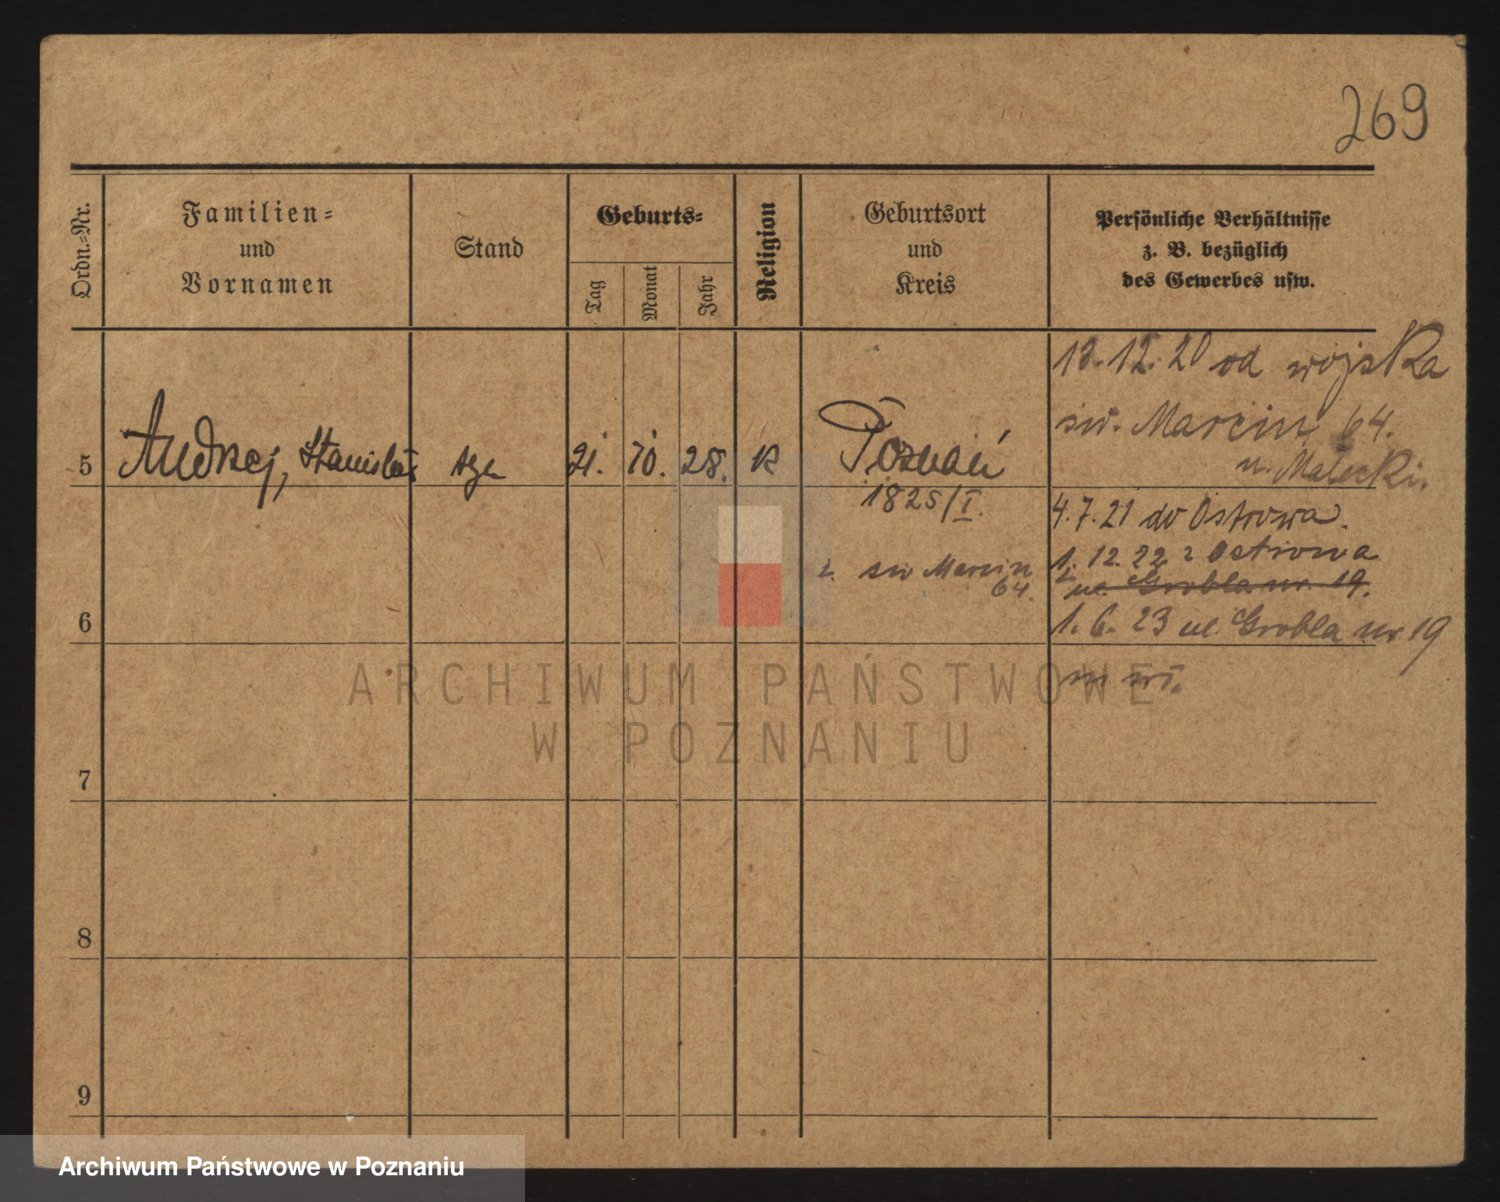 269
Ordn.=Nr.
Familien=
und
Vornamen
Stand
Geburts=
Tag
Monat
Jahr
Religion
Geburtsort
und
Kreis
Persönliche Verhältnisse
z. B. bezüglich
des Gewerbes usw.
13.12.20 od wojska
św. Marcin 64.
u. Małecki.
5 Andrzej, Stanisław 21. 10. 28. K Poznań
1825/I.
4.7.21 do Ostrowa.
1.12.22 z Ostrowa
z. św Marcin
64.
ul. Grobla nr. 19.
6
1.6.23 ul. Grobla nr 19
7
8
9
ARCHIWUM PAŃSTWOWE
W POZNANIU
Archiwum Państwowe w Poznaniu